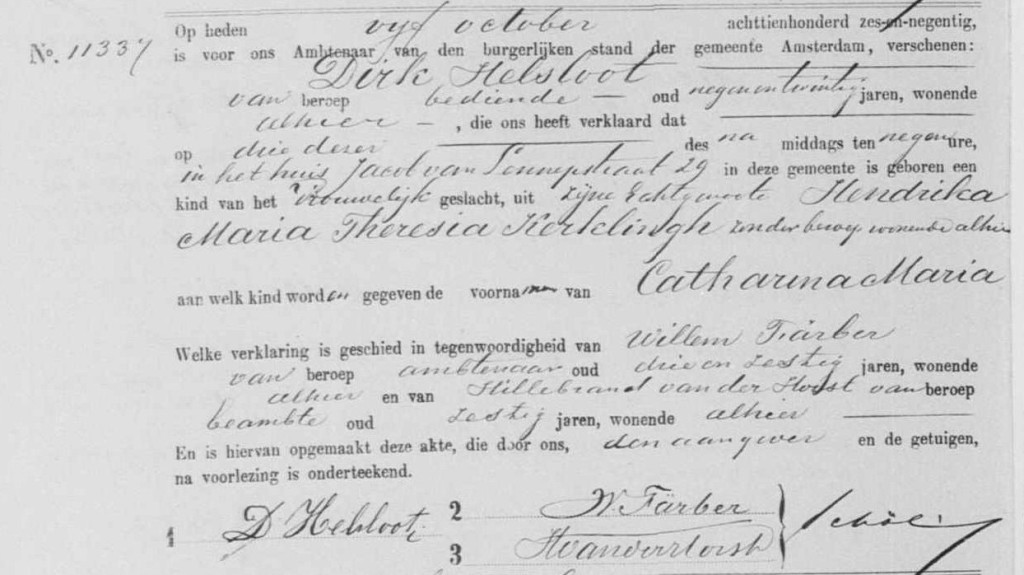 Op heden vijf october achttienhonderd zes-en-negentig,
No. 11337 is voor ons Ambtenaar van den burgerlijken stand der gemeente Amsterdam, verschenen:
Dirk Helsloot
van beroep bediende — oud negenentwintig jaren, wonende
alhier — , die ons heeft verklaard dat
op drie dezer des na middags ten negen ure,
in het huis Jacob van Lennepstraat 29 in deze gemeente is geboren een
kind van het Vrouwelijk geslacht, uit zijne Echtgenoote Hendrika
Maria Theresia Kerklingh zonder beroep wonende alhier
aan welk kind worden gegeven de voornamen van Catharina Maria
Welke verklaring is geschied in tegenwoordigheid van Willem Färber
van beroep ambtenaar oud drie en zestig jaren, wonende
alhier en van Hillebrand van der Horst van beroep
beambte oud zestig jaren, wonende alhier
En is hiervan opgemaakt deze akte, die door ons, den aangever en de getuigen,
na voorlezing is onderteekend.
1 D Helsloot 2 W. Färber
3 HvanderHorst